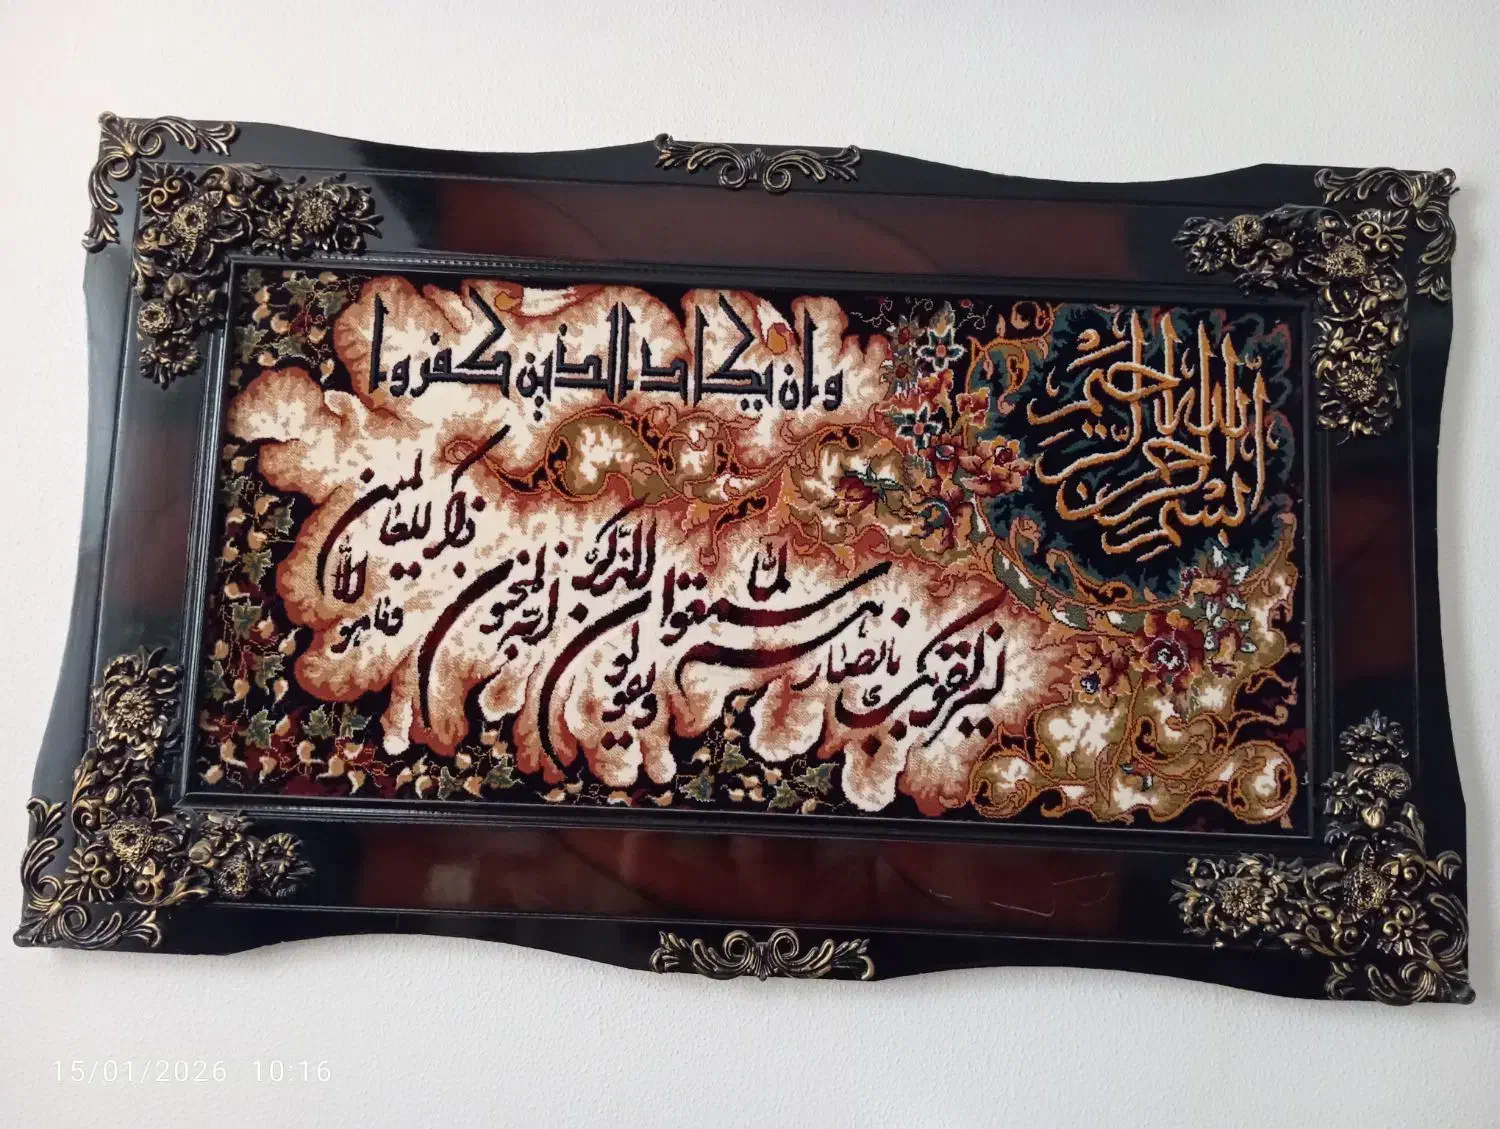 بسم الله الرحمن الرحیم
وان یکاد الذین کفروا
لیزلقونک بابصارهم لما سمعوا الذکر و یقولون انه لمجنون
وما هو الا ذکر للعالمین
15/01/2026 10:16